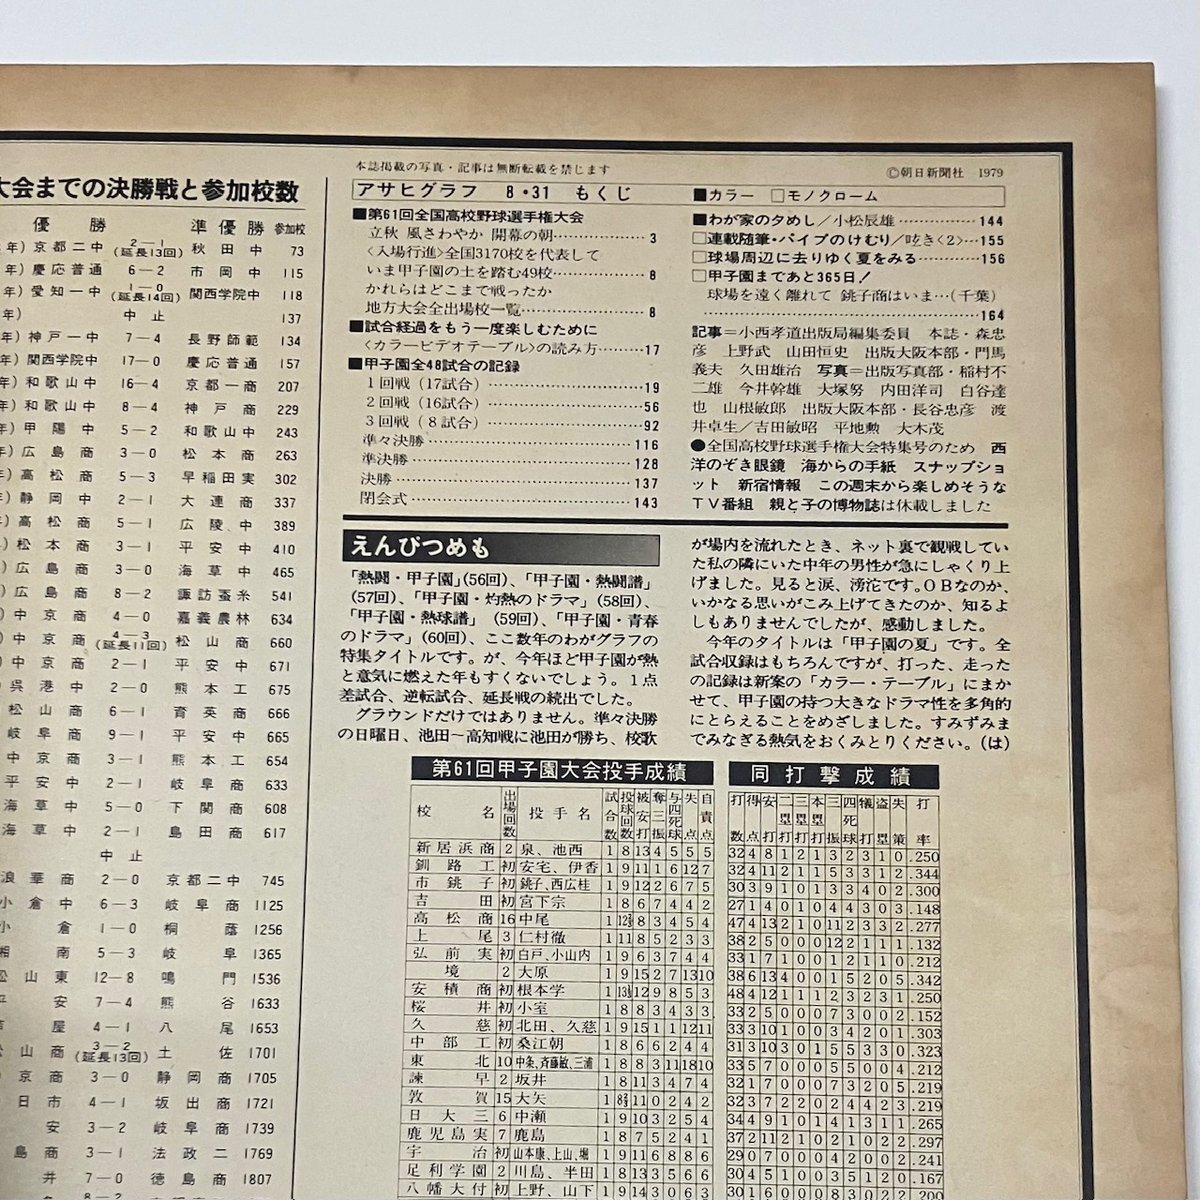 大会までの決勝戦と参加校数
優勝 準優勝 参加校
年）京都二中 2―1（延長13回） 秋田中 73
年）慶応普通 6―2 市岡中 115
年）愛知一中 1―0（延長14回） 関西学院中 118
年） 中止 137
年）神戸一中 7―4 長野師範 134
年）関西学院中 17―0 慶応普通 157
年）和歌山中 16―4 京都一商 207
年）和歌山中 8―4 神戸商 229
年）甲陽中 5―2 和歌山中 243
年）広島商 3―0 松本商 263
年）高松商 5―3 早稲田実 302
年）静岡中 2―1 大連商 337
年）高松商 5―1 広陵中 389
）松本商 3―1 平安中 410
）広島商 3―0 海草中 465
）広島商 8―2 諏訪蚕糸 541
）中京商 4―0 嘉義農林 634
）中京商 4―3（延長11回） 松山商 660
）中京商 2―1 平安中 671
呉港中 2―0 熊本工 675
松山商 6―1 育英商 666
岐阜商 9―1 平安中 665
中京商 3―1 熊本工 654
平安中 2―1 岐阜商 633
海草中 5―0 下関商 608
海草中 2―1 島田商 617
中止
浪華商 2―0 京都二中 745
小倉中 6―3 岐阜商 1125
小倉 1―0 桐蔭 1256
湘南 5―3 岐阜 1365
松山東 12―8 鳴門 1536
平安 7―4 熊谷 1633
芦屋 4―1 八尾 1653
松山商 3―2（延長13回） 土佐 1701
京商 3―0 静岡商 1705
日市 4―1 坂出商 1721
安 3―2 岐阜商 1739
島商 3―1 法政二 1769
井 7―0 徳島商 1807
8―2
本誌掲載の写真・記事は無断転載を禁じます
©朝日新聞社 1979
アサヒグラフ 8・31 もくじ ■カラー □モノクローム
■第61回全国高校野球選手権大会
立秋 風さわやか 開幕の朝……3
〈入場行進〉全国3170校を代表して
いま甲子園の土を踏む49校……8
かれらはどこまで戦ったか
地方大会全出場校一覧……8
■試合経過をもう一度楽しむために
〈カラービデオテーブル〉の読み方……17
■甲子園全48試合の記録
1回戦（17試合）……19
2回戦（16試合）……56
3回戦（8試合）……92
準々決勝……116
準決勝……128
決勝……137
閉会式……143
■わが家の夕めし／小松辰雄……144
□連載随筆・パイプのけむり／呟き〈2〉…155
□球場周辺に去りゆく夏をみる……156
□甲子園まであと365日！
球場を遠く離れて 銚子商はいま…（千葉）
……164
記事＝小西孝道出版局編集委員 本誌・森忠
彦 上野武 山田恒史 出版大阪本部・門馬
義夫 久田雄治 写真＝出版写真部・稲村不
二雄 今井幹雄 大塚努 内田洋司 白谷達
也 山根敏郎 出版大阪本部・長谷忠彦 渡
井卓生／吉田敏昭 平地勲 大木茂
●全国高校野球選手権大会特集号のため 西
洋のぞき眼鏡 海からの手紙 スナップショ
ット 新宿情報 この週末から楽しめそうな
ＴＶ番組 親と子の博物誌は休載しました
えんぴつめも
「熱闘・甲子園」(56回)、「甲子園・熱闘譜」
(57回)、「甲子園・灼熱のドラマ」(58回)、
「甲子園・熱球譜」(59回)、「甲子園・青春
のドラマ」(60回)、ここ数年のわがグラフの
特集タイトルです。が、今年ほど甲子園が熱
と意気に燃えた年もすくないでしょう。1点
差試合、逆転試合、延長戦の続出でした。
グラウンドだけではありません。準々決勝
の日曜日、池田〜高知戦に池田が勝ち、校歌
が場内を流れたとき、ネット裏で観戦してい
た私の隣にいた中年の男性が急にしゃくり上
げました。見ると涙、滂沱です。ＯＢなのか、
いかなる思いがこみ上げてきたのか、知るよ
しもありませんでしたが、感動しました。
今年のタイトルは「甲子園の夏」です。全
試合収録はもちろんですが、打った、走った
の記録は新案の「カラー・テーブル」にまか
せて、甲子園の持つ大きなドラマ性を多角的
にとらえることをめざしました。すみずみま
でみなぎる熱気をおくみとりください。(は)
第61回甲子園大会投手成績
校名 出場回数 投手名 試合数 投球回数 被安打 奪三振 与四死球 失点 自責点
新居浜商 2 泉、池西 1 8 13 4 5 5 5
釧路工 初 安宅、伊香 1 9 11 1 6 12 7
市銚子 初 銚子、西広桂 1 9 12 2 6 7 5
吉田 初 宮下宗 1 8 6 7 4 4 2
高松商 16 中尾 1 12⅔ 8 3 4 5 4
上尾 3 仁村徹 1 11 8 5 2 3 3
弘前実 初 白戸、小山内 1 9 6 3 7 4 4
境 2 大原 1 9 15 2 7 13 10
安積商 初 根本学 1 13 12 9 8 5 3
桜井 初 小室 1 8 8 3 4 3 3
久慈 初 北田、久慈 1 9 15 1 1 12 11
中部工 初 桑江朝 1 8 6 6 2 4 4
東北 10 中条、斉藤敏、三浦 1 8 8 3 11 18 10
諫早 2 坂井 1 8 11 3 4 7 4
敦賀 15 大矢 1 8⅔ 11 0 2 4 2
日大三 6 中瀬 1 9 10 3 2 5 4
鹿児島実 7 鹿島 1 8 7 5 2 4 1
宇治 初 山本康、上山、堀 1 9 11 6 8 8 6
足利学園 2 川島、半田 1 8 13 3 5 6 6
八幡大付 初 上野、山下 1 9 14 3 0 6 3
同打撃成績
打数 得点 安打 二塁打 三塁打 本塁打 三振 四死球 犠打 盗塁 失策 打率
32 4 8 1 2 1 3 2 3 1 0 .250
32 4 11 2 1 1 5 3 3 1 2 .344
30 3 9 1 0 1 3 3 4 0 2 .300
27 1 4 0 1 0 4 4 3 0 3 .148
47 4 13 2 1 0 11 2 3 3 2 .277
38 2 5 0 0 0 12 2 1 1 1 .132
33 1 7 0 0 1 2 1 1 1 0 .212
38 6 13 4 0 0 1 5 2 0 5 .342
48 4 12 1 1 1 2 3 2 3 1 .250
33 2 5 0 0 0 7 3 0 0 2 .152
33 3 10 1 0 0 3 4 2 0 1 .303
31 3 10 3 0 1 5 5 3 3 0 .323
33 5 7 0 0 0 5 5 0 0 4 .212
32 1 7 0 0 0 7 3 2 0 5 .219
32 3 7 2 2 0 2 4 4 2 3 .219
34 4 9 1 0 1 4 1 3 1 1 .265
37 2 11 2 1 0 2 1 0 2 2 .297
29 0 7 0 0 0 4 5 2 0 2 .241
30 4 5 1 0 0 3 5 1 2 0 .167
30 1 6 0 0 0 8 3 0 2 2 .200